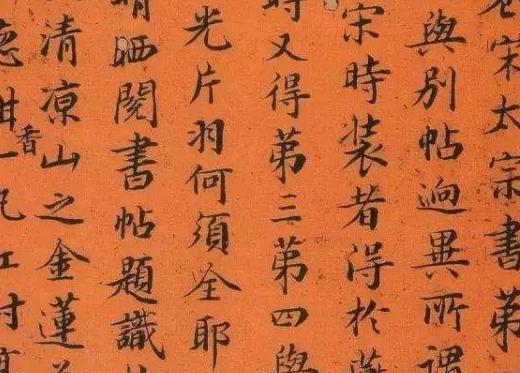 宋太宗書第
與別帖迥異所謂
宋時装者得於
時又得第三第四與
光片羽何須全耶
晴晒閱書帖題識
清涼山之金蓮
香